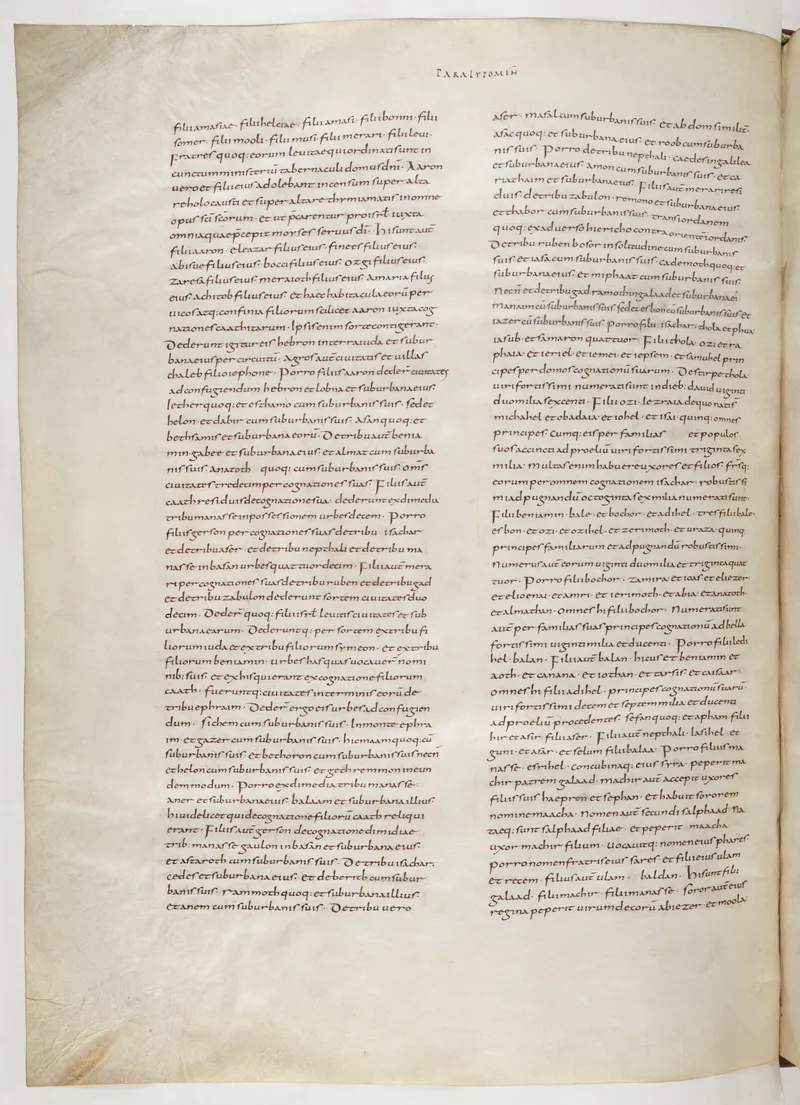 PARALYPOMEN̄
filii amasiae· filii helciae· filii amasi· filii bonni· filii
somer· filii mooli· filii musi· filii merari· filii leui·
Fratres quoq: eorum leuitae qui ordinati sunt in
cunctum ministeriū tabernaculi domus dn̄i· Aaron
uero et filii eius adolebant incensum super alta
re holocausti et super altare thymiamatis in omne
opus sc̄i sc̄orum· et ut p̄carentur pro isrl̄ iuxta
omnia quae p̄cepit moyses seruus dī· hi sunt aūt
filii aaron· eleazar filius eius· finees filius eius·
abisue filius eius· bocci filius eius· ozzi filius eius·
zareia filius eius· meraioth filius eius· amaria filius
eius· achitob filius eius· et haec habitacula eorū per
uicos atq: confinia filiorum scilicet aaron iuxta cog
nationes caathitarum· Ipsis enim sorte contigerant·
Dederunt igitur eis hebron in terra iuda et subur
bana eius per circuitū· Agros aūt ciuitatis et uillas
chaleb filio iephone· Porro filiis aaron deder̄ ciuitates
ad confugiendum hebron et lobna et suburbana eius·
Iether quoq: et esthamo cum suburbanis suis· sed et
helon et dabir cum suburbanis suis· Asan quoq: et
bethsamis et suburbana eorū· De tribu aūt benia
min gabee et suburbana eius· et almat cum suburba
nis suis· Anatoth quoq: cum suburbanis suis· om̄s
ciuitates tredecim per cognationes suas· Filiis aūt
caath residuis de cognatione sua· dederunt ex dimidia
tribu manasse in possessionem urbes decem· Porro
filiis gerson per cognationes suas de tribu isachar·
et de tribu aser· et de tribu nepthali et de tribu ma
nasse in basan urbes quattuordecim· Filiis aūt mera
ri per cognationes suas de tribu ruben et de tribu gad
et de tribu zabulon dederunt sorte ciuitates duo
decim· Deder̄ quoq: filii isrl̄ leuitis ciuitates et sub
urbana earum· Dederuntq: per sortem ex tribu fi
liorum iuda et ex tribu filiorum symeon· et ex tribu
filiorum beniamin· urbes has quas uocauer̄ nomi
nib: suis· et ex his qui erant ex cognatione filiorum
caath· fueruntq: ciuitates in terminis eorū de
tribu ephraim· Deder̄ ergo eis urbes ad confugien
dum· sichem cum suburbanis suis· In monte ephra
im· et gazer cum suburbanis suis· hiemaam quoq: cū
suburbanis suis· et bethoron cum suburbanis suis necn̄
et helon cum suburbanis suis· et gethremmon in eun
dem modum· Porro ex dimedia tribu manasse·
aner et suburbana eius· balaam et suburbana illius·
his uidelicet qui de cognatione filiorū caath reliqui
erant· Filiis aūt gerson de cognatione dimidiae
trib: manasse gaulon in basan et suburbana eius·
et astaroth cum suburbanis suis· De tribu isachar·
cedes et suburbana eius· et deberith cum subur
banis suis· rammoth quoq: et suburbana illius·
et anem cum suburbanis suis· De tribu uero
aser· masal cum suburbanis suis· et abdom similit̄·
asac quoq: et suburbana eius· et roob cum suburba
nis suis· Porro de tribu nepthali· caedes in galilea
et suburbana eius· amon cum suburbanis suis· et ca
riathaim et suburbana eius· Filiis aūt merari resi
duis· de tribu zabulon· remono et suburbana eius·
et thabor cum suburbanis suis· trans iordanem
quoq: ex aduerso hiericho contra orientē iordanis·
De tribu ruben bosor in solitudine cum suburbanis
suis· et iasa cum suburbanis suis· cademoth quoq: et
suburbana eius· et miphaat cum suburbanis suis·
Necn̄ et de tribu gad ramoth in galaad et suburbana ei·
manaim cū suburbanis suis· sed et esbon cū suburbanis suis· et
iazer cū suburbanis suis· Porro filii isachar· thola et phua
iasub· et samaron quattuor· Filii thola· ozi et ra
phaia· et ieriel· et iemei· et iepsem· et samuhel prin
cipes per domos cognationū suarum· De stirpe thola·
uiri fortissimi numerati sunt in dieb: dauid uiginti
duo milia sexcenti· Filii ozi· Iezraia de quo nati s̄
michahel et obadia· et iohel· et isai· quinq: omnes
principes· Cumq: eis per familias et populos
suos accincti ad proeliū uiri fortissimi triginta sex
milia· multas enim habuere uxores et filios· fr̄sq:
eorum per omnem cognationem isachar· robustissi
mi ad pugnandū octoginta sex milia numerati sunt·
Filii beniamin· bale· et bochor· et adihel· tres filii bale·
esbon· et ozi· et ozihel· et zerimoth· et uraza· quinq:
principes familiarum et ad pugnandū robustissimi·
Numerus aūt eorum uiginti duo milia et triginta quat
tuor· Porro filii bochor· zamira· et ioas et eliezer·
et elioenai· et amri· et ierimoth· et abia· et anatoth·
et almathan· omnes hi filii bochor· Numerati sunt
aūt per familias suas principes cognationū ad bella
fortissimi uiginti milia et ducenti· Porro filii iedi
hel· balan· Filii aūt balan· hieus et beniamin et
aoth· et canana· et iothan· et tarsis· et caisaar·
omnes hi filii adihel· principes cognationū suarū·
uiri fortissimi decem et septem milia et ducenti
ad proeliū procedentes· sefan quoq: et apham filii
hir· et asir· filii aser· Filii aūt nepthali· iasihel· et
guni· et asar· et selum filii balaa· Porro filius ma
nasse· esrihel· concubinaq: eius syra· peperit ma
chir patrem galaad· machir aūt accepit uxores
filiis suis haepron et sephan· et habuit sororem
nomine maacha· Nomen aūt secundi salphaad· Na
taeq: sunt salphaad filiae· et peperit maacha
uxor machir filium· uocauitq: nomen eius phares·
porro nomen fratris eius sares· et filii eius ulam
et recem· filius aūt ulam· baldan· hi sunt filii
galaad· filii machir· filii manasse· soror aūt eius
regina peperit uirum decorū abiezer· et moola·